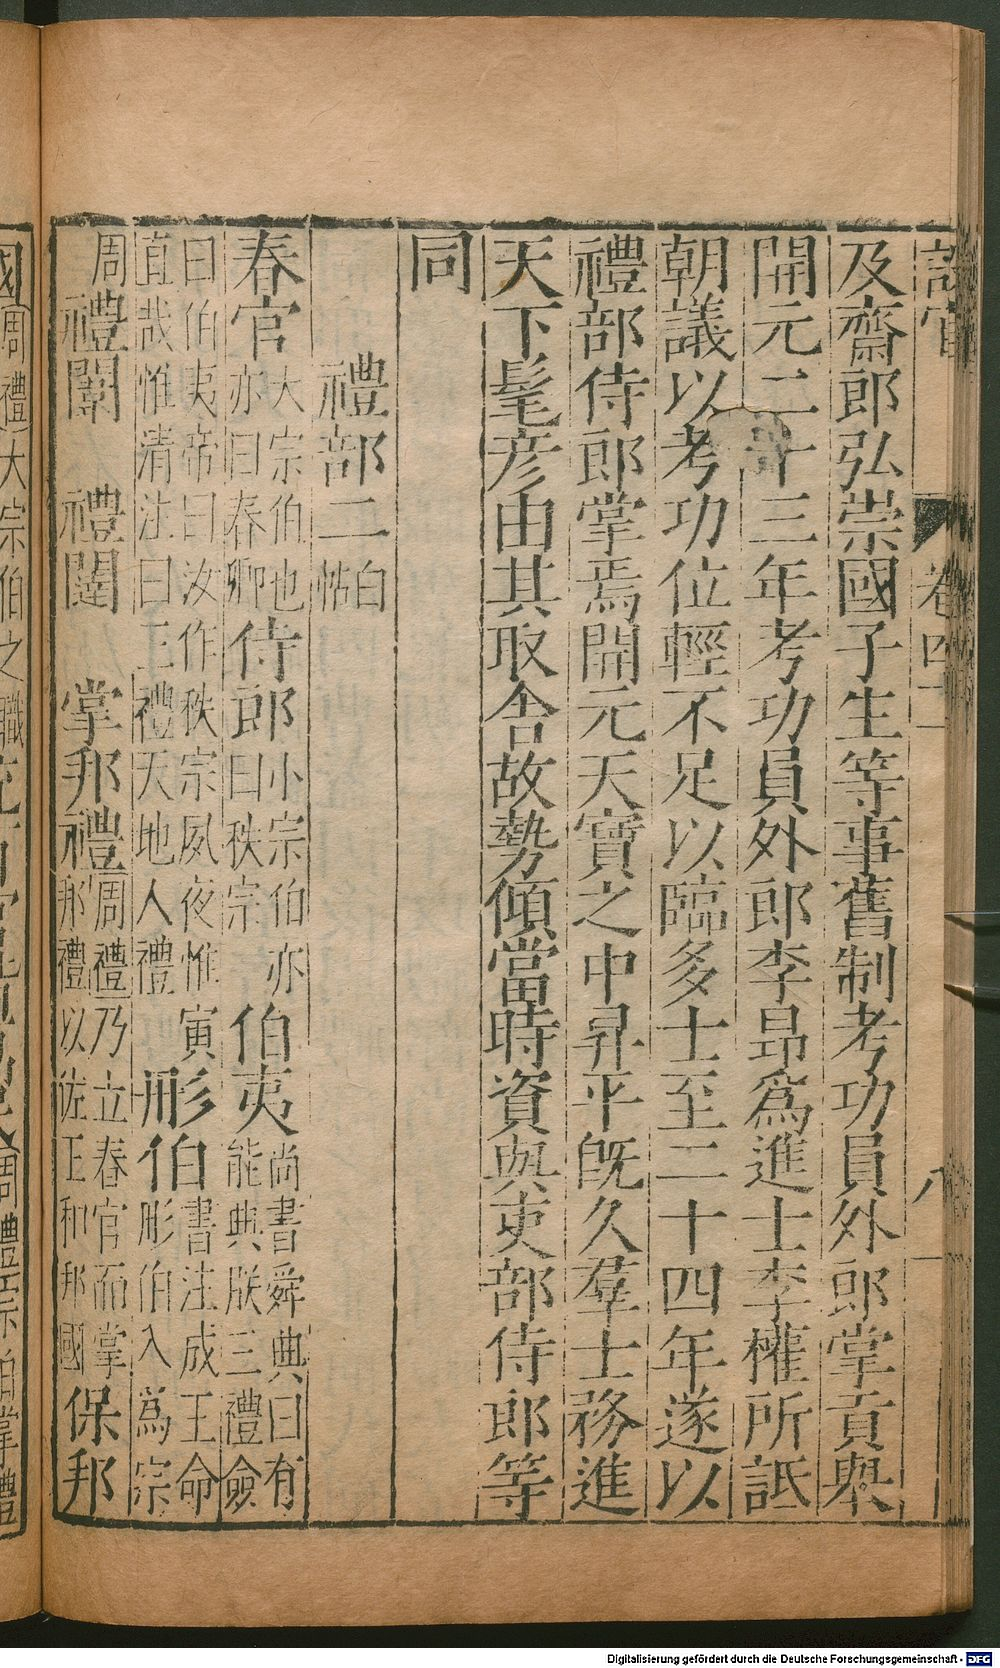 及齋郎弘崇國子生等事舊制考功員外郎掌貢舉
開元二十三年考功員外郎李昂爲進士李權所詆
朝議以考功位輕不足以臨多士至二十四年遂以
禮部侍郎掌焉開元天寶之中昇平旣久羣士務進
天下髦彦由其取舍故勢傾當時資與吏部侍郎等
同
禮部二白帖
春官大宗伯也亦曰春卿侍郎小宗伯亦曰秩宗伯夷尚書舜典曰有能典朕三禮僉
曰伯夷帝曰汝作秩宗夙夜惟寅直哉惟清注曰三禮天地人禮彤伯書注成王命彤伯入爲宗
周禮闈禮闥掌邦禮周禮乃立春官而掌邦禮以佐王和邦國保邦
國周禮大宗伯之職
卷四十二
八
Digitalisierung gefördert durch die Deutsche Forschungsgemeinschaft - DFG